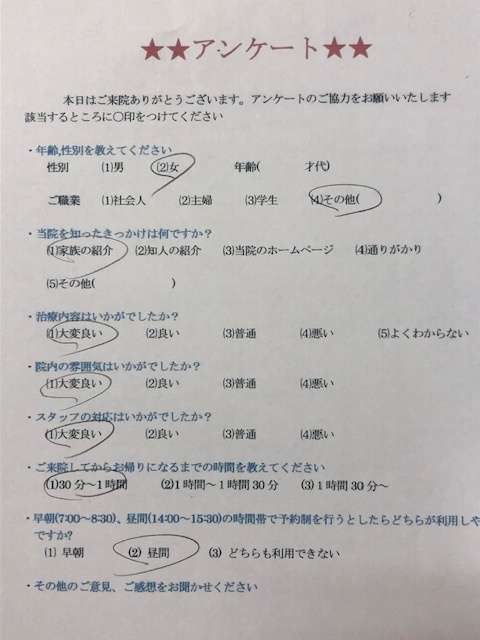 ★★アンケート★★
本日はご来院ありがとうございます。アンケートのご協力をお願いいたします
該当するところに〇印をつけてください
・年齢,性別を教えてください
性別 (1)男 (2)女 年齢( 才代)
ご職業 (1)社会人 (2)主婦 (3)学生 (4)その他( )
・当院を知ったきっかけは何ですか?
(1)家族の紹介 (2)知人の紹介 (3)当院のホームページ (4)通りがかり
(5)その他( )
・治療内容はいかがでしたか?
(1)大変良い (2)良い (3)普通 (4)悪い (5)よくわからない
・院内の雰囲気はいかがでしたか?
(1)大変良い (2)良い (3)普通 (4)悪い
・スタッフの対応はいかがでしたか?
(1)大変良い (2)良い (3)普通 (4)悪い
・ご来院してからお帰りになるまでの時間を教えてください
(1)30分～1時間 (2)1時間～1時間30分 (3)1時間30分～
・早朝(7:00～8:30)、昼間(14:00～15:30)の時間帯で予約制を行うとしたらどちらが利用しや
ですか?
(1) 早朝 (2) 昼間 (3) どちらも利用できない
・その他のご意見、ご感想をお聞かせください